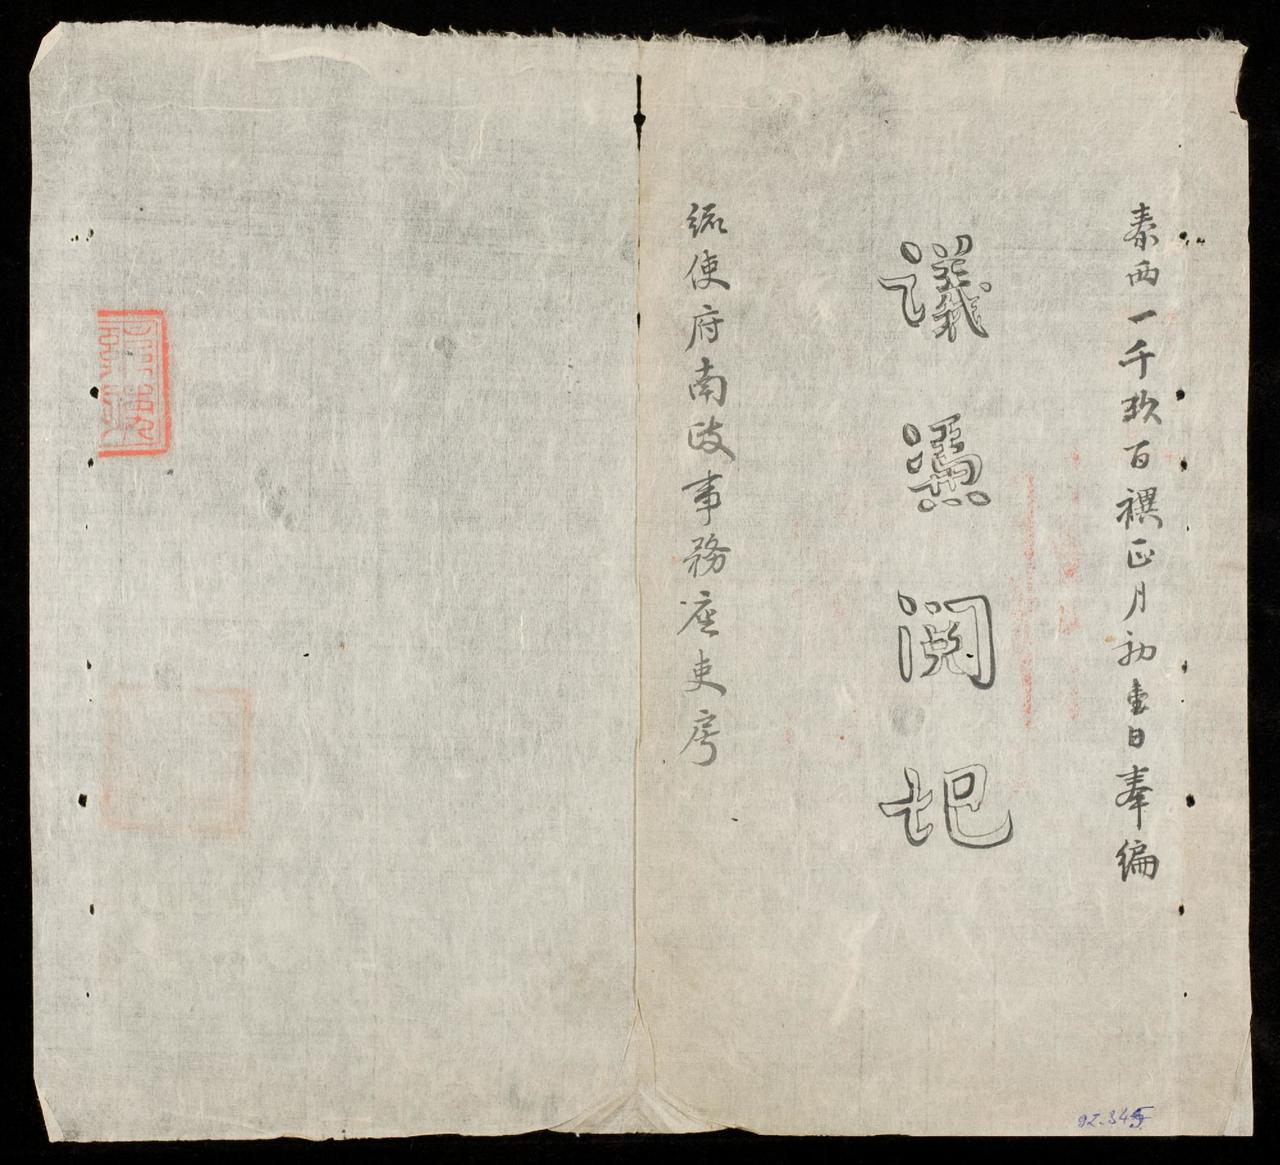 泰西一千玖百禩正月初壹日奉編
議憑閱記
統使府南政事務座吏房
92.345